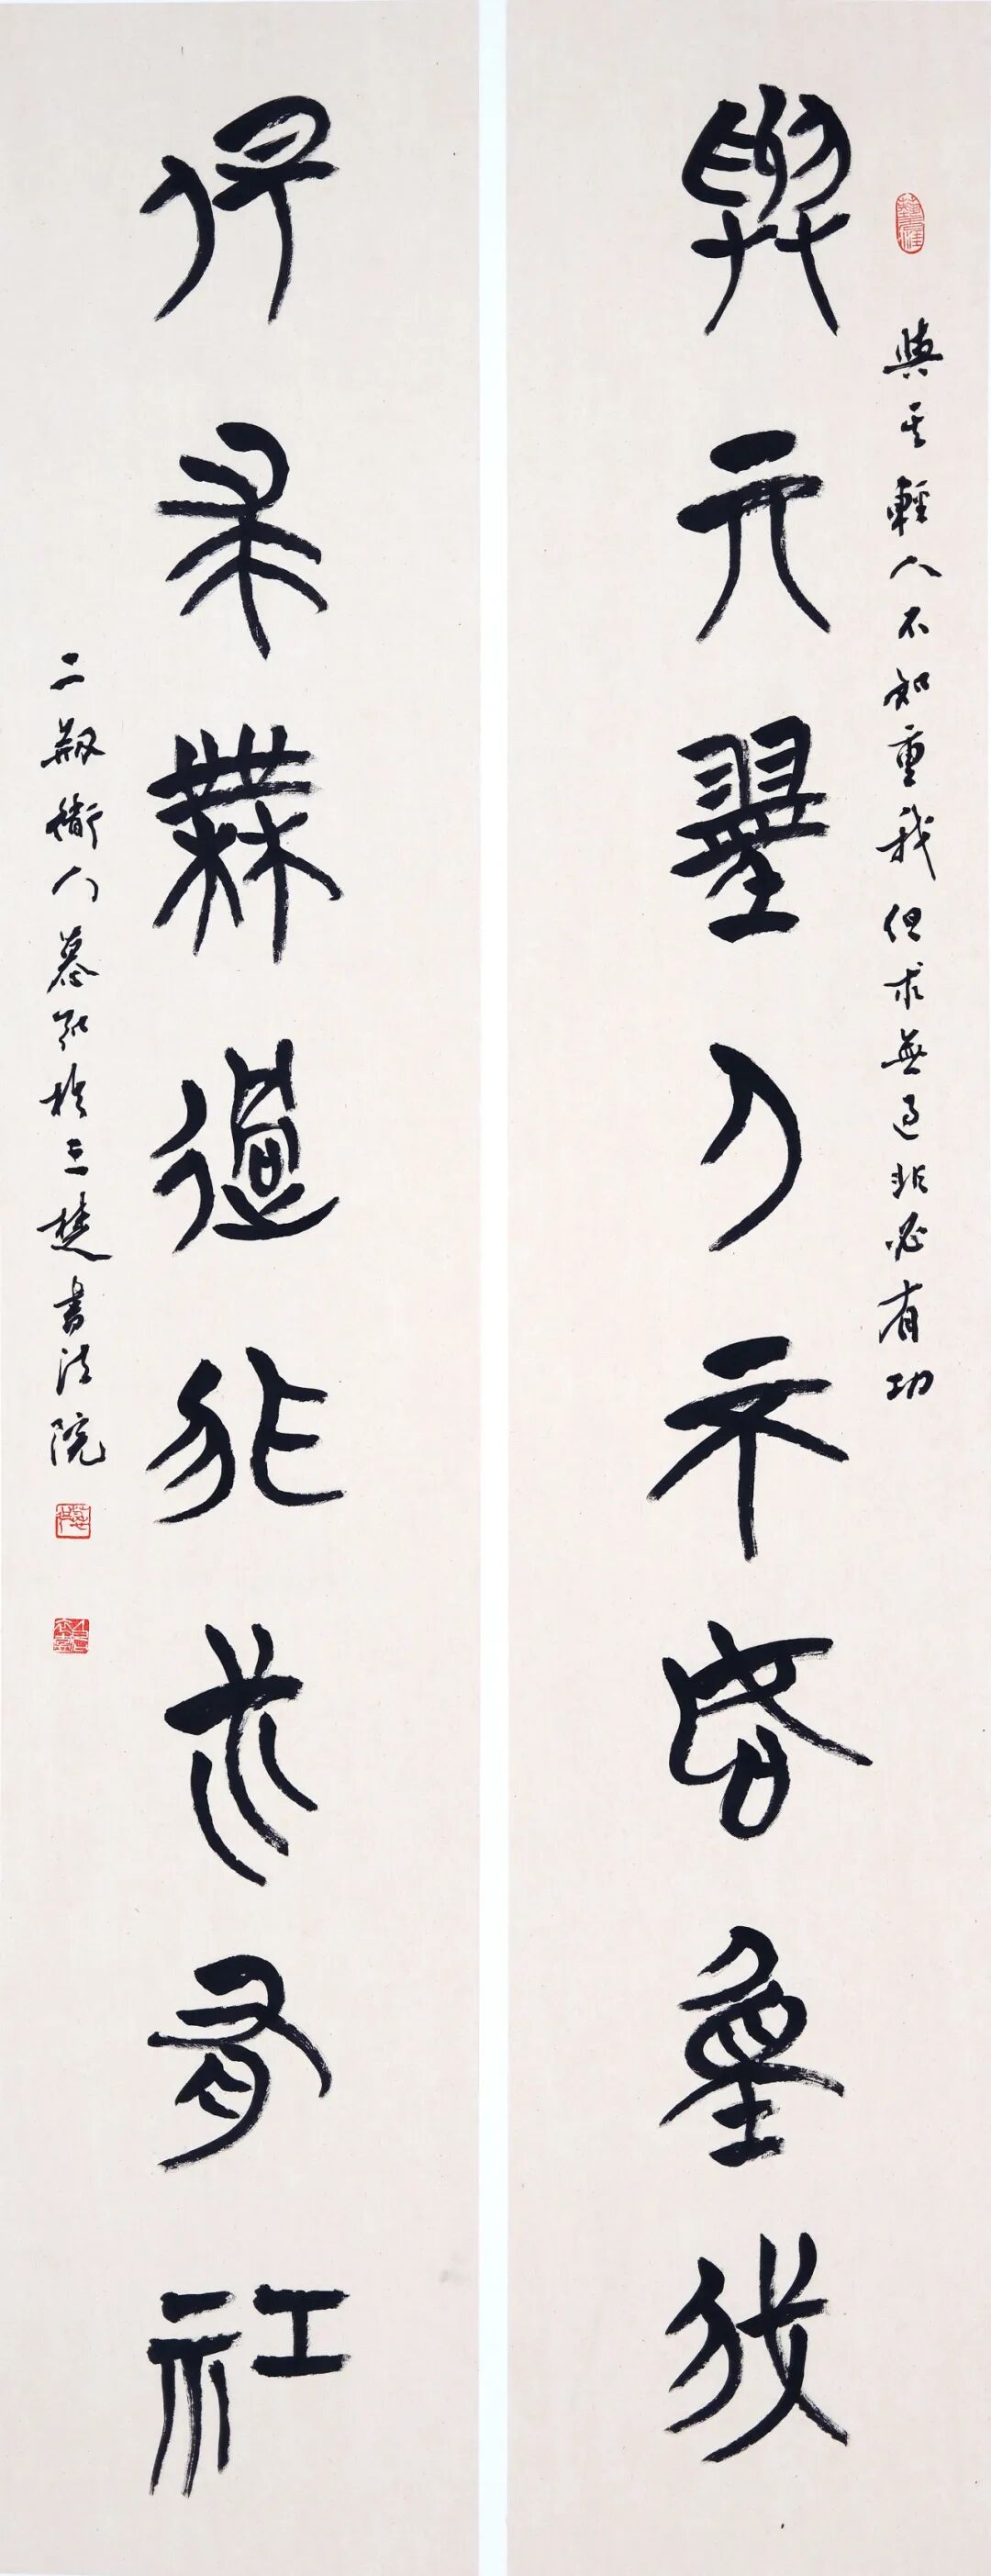 與其輕人不知重我
與其輕人不知重我但求無過非必有功
但求無過非必有功
二瓻衡人慕弘於三楚書法院